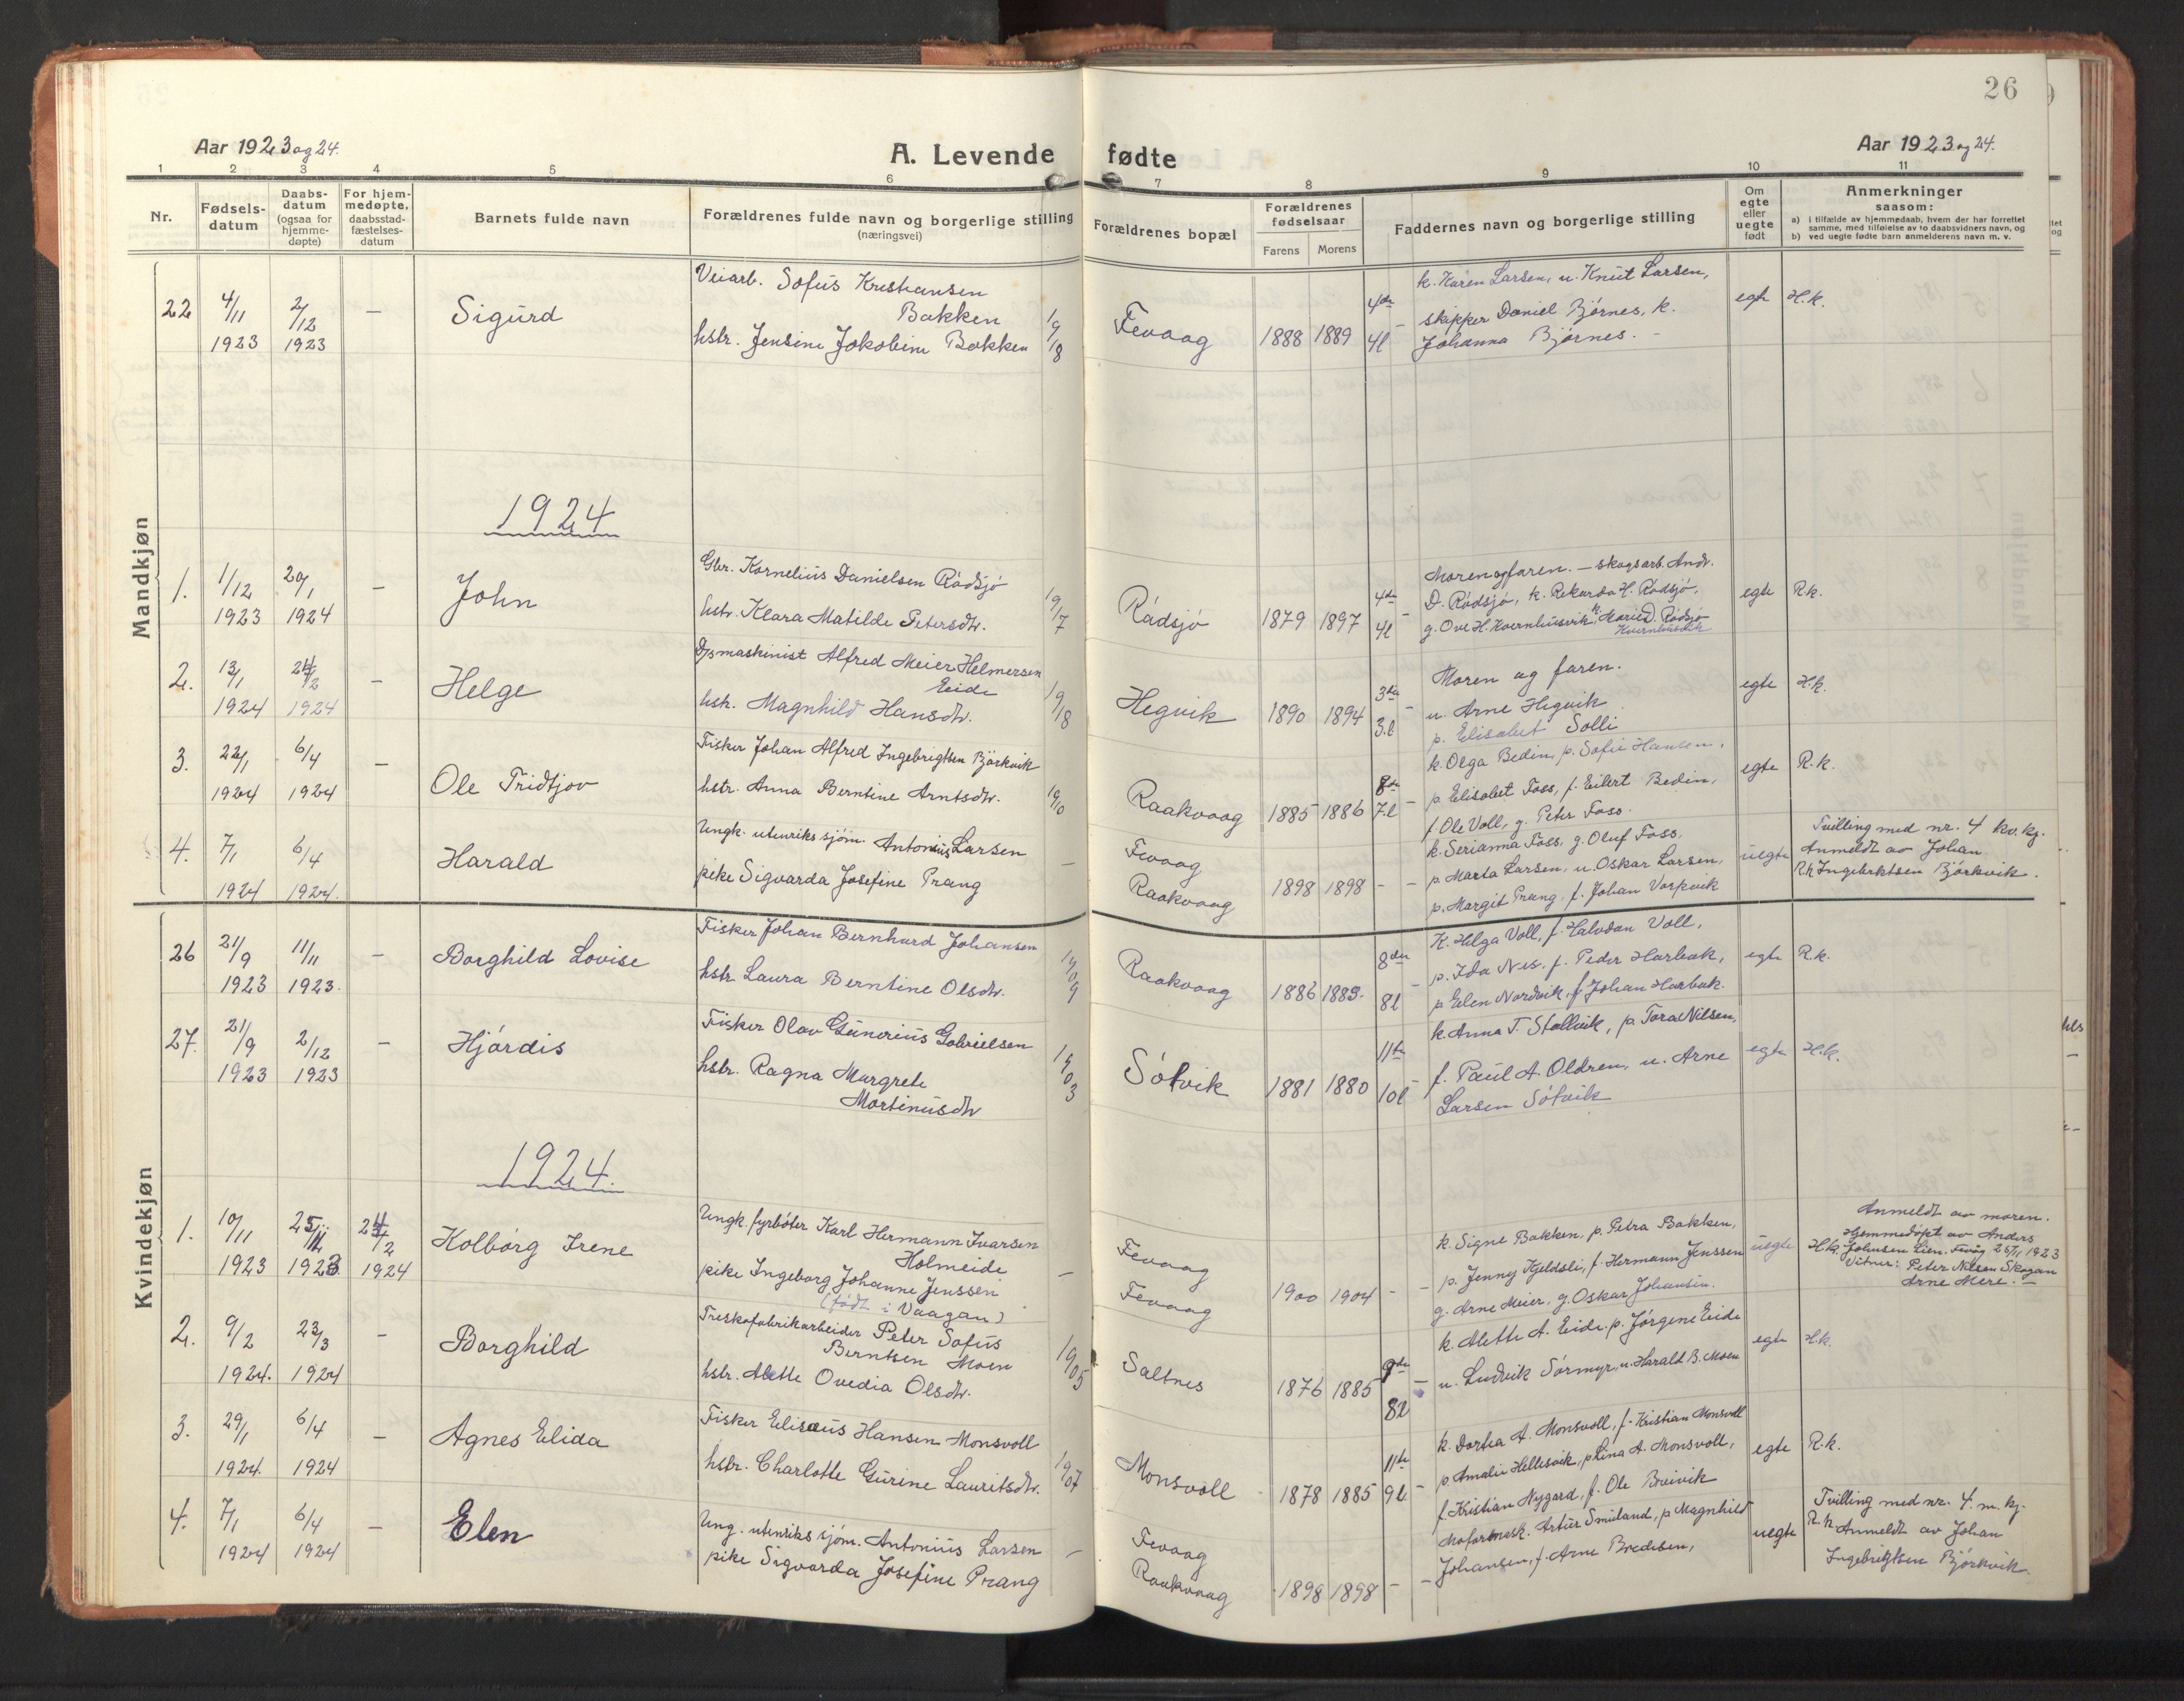 26
Aar 1923 og 24.
A. Levende fødte
Aar 1923 og 24.
1 2 3 4 5 6 7 8 9 10 11
Nr.
Fødselsdatum
Daabsdatum (ogsaa for hjemmedøpte)
For hjemmedøpte, daabsstadfæstelsesdatum
Barnets fulde navn
Forældrenes fulde navn og borgerlige stilling
(næringsvei)
Forældrenes bopæl
Forældrenes fødselsaar
Farens Morens
Faddernes navn og borgerlige stilling
Om egte eller uegte født
Anmerkninger
saasom:
a) i tilfælde av hjemmedaab, hvem der har forrettet samme, med tilføielse av to daabsvidners navn, og
b) ved uegte fødte barn anmelderens navn m. v.
Mandkjøn
22 4/11 1923 2/12 1923 — Sigurd
Veiarb. Sofus Kristiansen
Bakken
hstr. Jensine Jakobine Bakken 19/18
Fevaag 1888 1889 4de 4l –
k. Karen Larsen, u. Knut Larsen,
skipper Daniel Bjørnes, k.
Johanna Bjørnes. –
egte H.k.
1924
1. 1/12 1923 20/1 1924 – John
Gbr. Kornelius Danielsen Rødsjø
hstr. Klara Matilde Petersdtr. 19/17
Rødsjø 1879 1897 4de 4l –
Moren og faren. – skogsarb. Andr.
D. Rødsjø, k. Rekarda H. Rødsjø,
g. Ove H. Kvernhusvik, k. Marie D. Rødsjø
Kvernhusvik
egte R.k.
2. 13/1 1924 24/2 1924 – Helge
D/s maskinist Alfred Meier Helmersen
Eide
hstr. Magnhild Hansdtr. 19/18
Hegvik 1890 1894 3die 3.l –
Moren og faren.
u. Arne Hegvik
p. Elisabet Solli
egte H.k.
3. 22/1 1924 6/4 1924 – Ole Fridtjov
Fisker Johan Alfred Ingebrigtsen Bjørkvik
hstr. Anna Berntine Arntsdtr. 19/10
Raakvaag 1885 1886 8de 7.l –
k. Olga Bedin, p. Sofie Hansen,
p. Elisabet Foss, f. Eilert Bedin,
f. Ole Voll, g. Peter Foss.
egte R.k.
4. 7/1 1924 6/4 1924. Harald
Ungk. utenriks sjøm. Antonius Larsen
pike Sigvarda Josefine Prang –
Fevaag
Raakvaag 1898 1898 – –
k. Serianna Foss, g. Oluf Foss.
p. Marta Larsen, u. Oskar Larsen,
p. Margit Prang, f. Johan Vorpvik
uegte R.k
Tvilling med nr. 4 kv. kj.
Anmeldt av Johan
Ingebriktsen Bjørkvik.
Kvindekjøn
26 21/9 1923 11/11 1923. – Borghild Lovise
Fisker Johan Bernhard Johansen
hstr. Laura Berntine Olsdtr. 19/09
Raakvaag 1886 1889. 8de 8l –
K. Helga Voll, f. Halvdan Voll,
p. Ida Nes. f. Peder Harbak,
p. Elen Nordvik, f. Johan Harbak.
egte R.k.
27. 21/9 1923 2/12 1923 – Hjørdis
Fisker Olav Gunerius Gabrielsen
hstr. Ragna Margrete
Martinusdtr 19/03
Søtvik 1881 1880 11te 10l –
k. Anna T. Stallvik, p. Tora Nilsen,
f. Paul A. Oldren, u. Arne
Larsen Søtvik
egte H.k.
1924.
1. 10/11 1923 25/11 1923 24/2 1924 Kolbørg Irene
Ungk. fyrbøter Karl Hermann Ivarsen
Holmeide
pike Ingeborg Johanne Jenssen
(født i Vaagan) –
Fevaag
Fevaag 1900 1904 – –
k. Signe Bakken, p. Petra Bakken,
p. Jenny Kjeldsli, f. Hermann Jenssen
g. Arne Meier, g. Oskar Johansen.
uegte H.k.
Anmeldt av moren.
Hjemmedøpt av Anders
Johnsen Lien. Fevåg 25/11 1923
Vitner: Peter Nilsen Skogan
Arne Mere. –
2. 9/2 1924. 23/3 1924 – Borghild
Treskofabrikarbeider Peter Sofus
Berntsen Moen
hstr. Alette Ovedia Olsdtr. 19/05
Saltnes 1876 1885 9de 8l –
k. Alette A. Eide. p. Jørgene Eide
u. Ludvik Sørmyr, u. Harald B. Moen
egte H.k.
3. 29/1 1924. 6/4 1924 – Agnes Elida
Fisker Eliseus Hansen Monsvoll
hstr. Charlotte Gurine Lauritsdtr. 19/07
Monsvoll 1878 1885 11te 9l –
k. Dortea A. Monsvoll, f. Kristian Monsvoll
p. Amalie Hellesvik, p. Lina A. Monsvoll,
f. Kristian Nygard, f. Ole Breivik
egte R.k.
4. 7/1 1924 6/4 1924 – Elen
Ung. utenriks sjøm. Antonius Larsen
pike Sigvarda Josefine Prang –
Fevaag
Raakvaag 1898 1898 – –
Artur Småland, p. Magnhild
Johansen, f. Arne Bredesen,
uegte R.k
Tvilling med nr. 4. m. kj.
Anmeldt av Johan
Ingebrigtsen Bjørkvik.